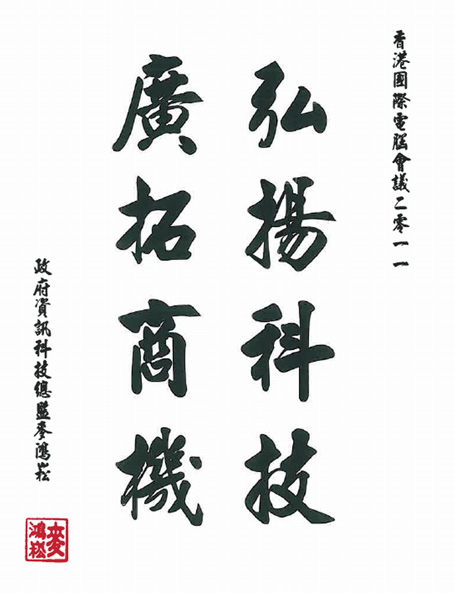 香港國際電腦會議二零一一
弘揚科技
廣拓商機
政府資訊科技總監麥鴻崧
麥鴻崧